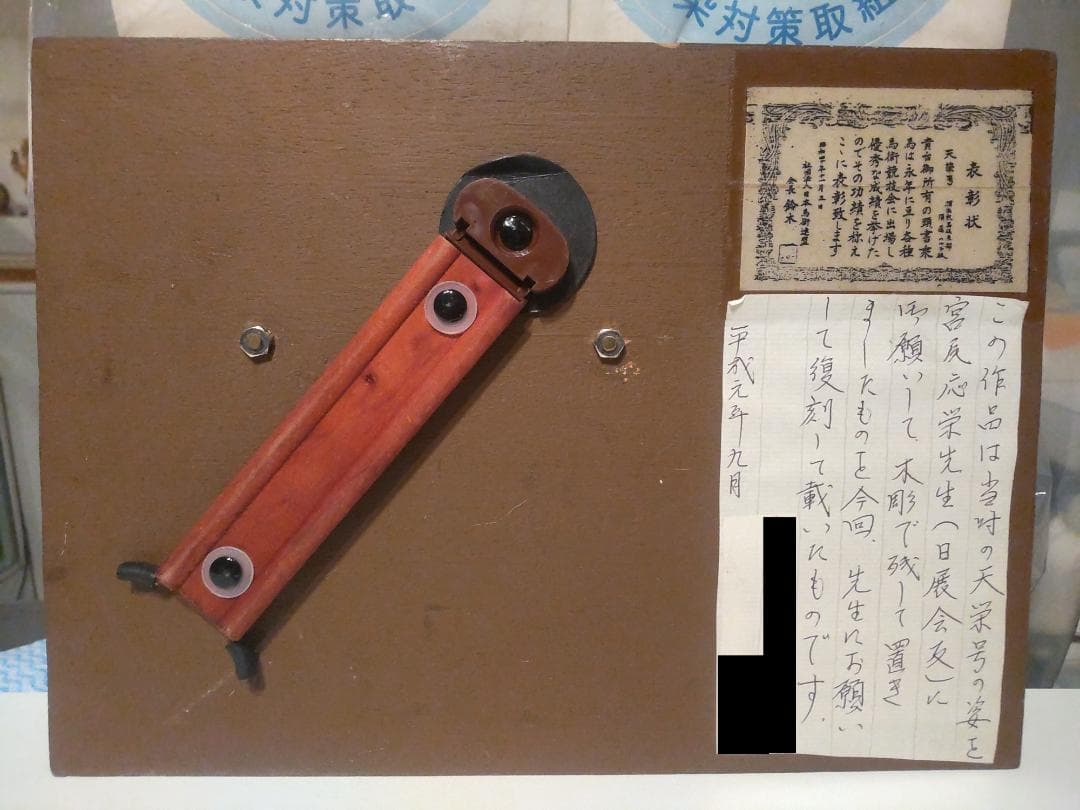 対策取
対策取組
表彰状
天栄号
貴台御所有の頭書乘
馬は永年に亘り各種
馬術競技会に出場し
優秀な成績を挙げた
のでその功績を称え
こゝに表彰致します
社団法人日本馬術連盟
会長 鈴木
この作品は当時の天栄号の姿を
宮尻応栄先生(日展会友)に
お願いして、木彫で残して置き
ましたものを今回、先生にお願い
して復刻して載いたものです。
平成元年九月